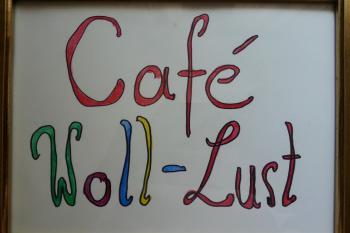 Café
Woll-Lust